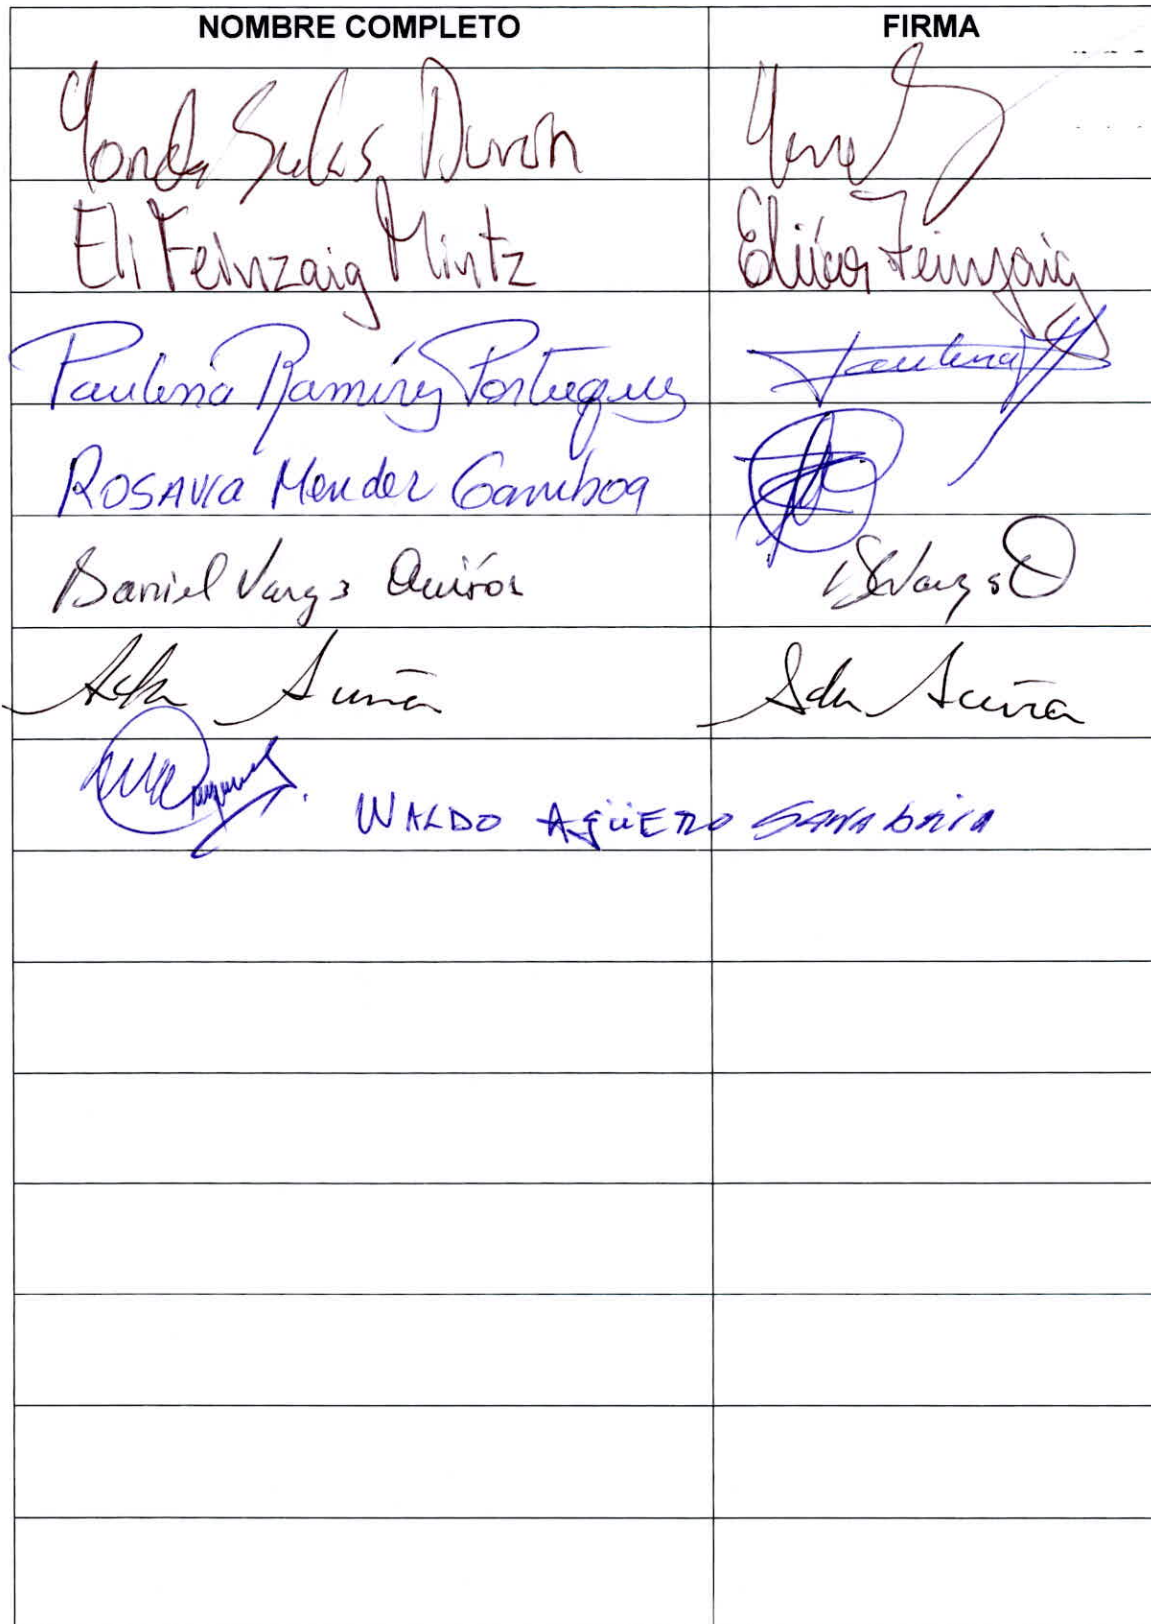 NOMBRE COMPLETO FIRMA
Yonder Salas Durán
Eli Feinzaig Mintz Eliécer Feinzaig
Paulina Ramírez Portuguez Paulina
ROSAVIA Mendez Gamboa
Daniel Vargas Quirós DVargasQ
Ada Acuña Ada Acuña
WALDO AgüERO SANAbRiA